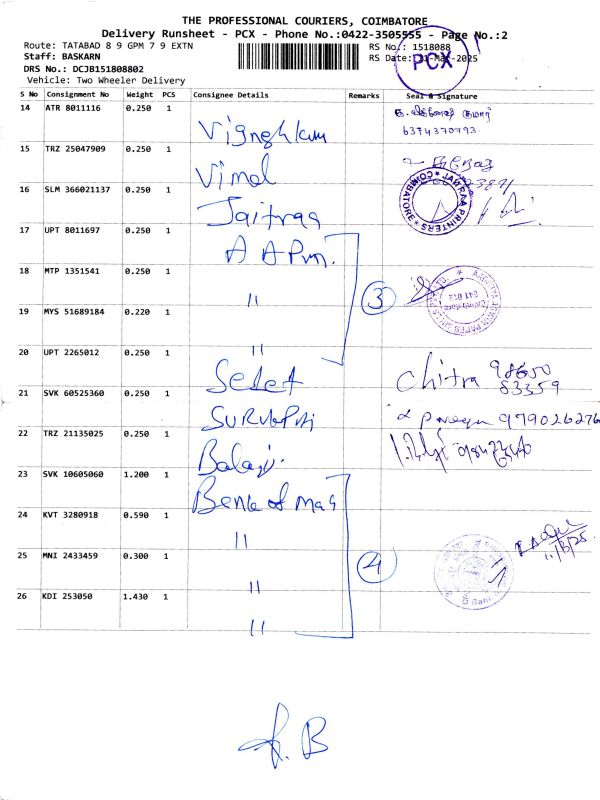 THE PROFESSIONAL COURIERS, COIMBATORE
Delivery Runsheet - PCX - Phone No.:0422-3505555 - Page No.:2
Route: TATABAD 8 9 GPM 7 9 EXTN
RS No.: 1518088
Staff: BASKARN
RS Date: -Mar-2025
PCX
DRS No.: DCJB151808802
Vehicle: Two Wheeler Delivery
S No Consignment No Weight PCS Consignee Details Remarks Seal & Signature
14 ATR 8011116 0.250 1
6374370793
15 TRZ 25047909 0.250 1 Vimal
16 SLM 366021137 0.250 1 Jaitraa
COIMBATORE ★ JAITRAA PRINTERS ★
17 UPT 8011697 0.250 1 A A Pvm.
18 MTP 1351541 0.250 1 " 3
19 MYS 51689184 0.220 1 "
20 UPT 2265012 0.250 1 Select Chitra 98650 83359
21 SVK 60525360 0.250 1 979026276
22 TRZ 21135025 0.250 1 Balaji.
23 SVK 10605060 1.200 1 Bank of mah
24 KVT 3280918 0.590 1 "
11/3/25
25 MNI 2433459 0.300 1 " 4
26 KDI 253050 1.430 1 "
B